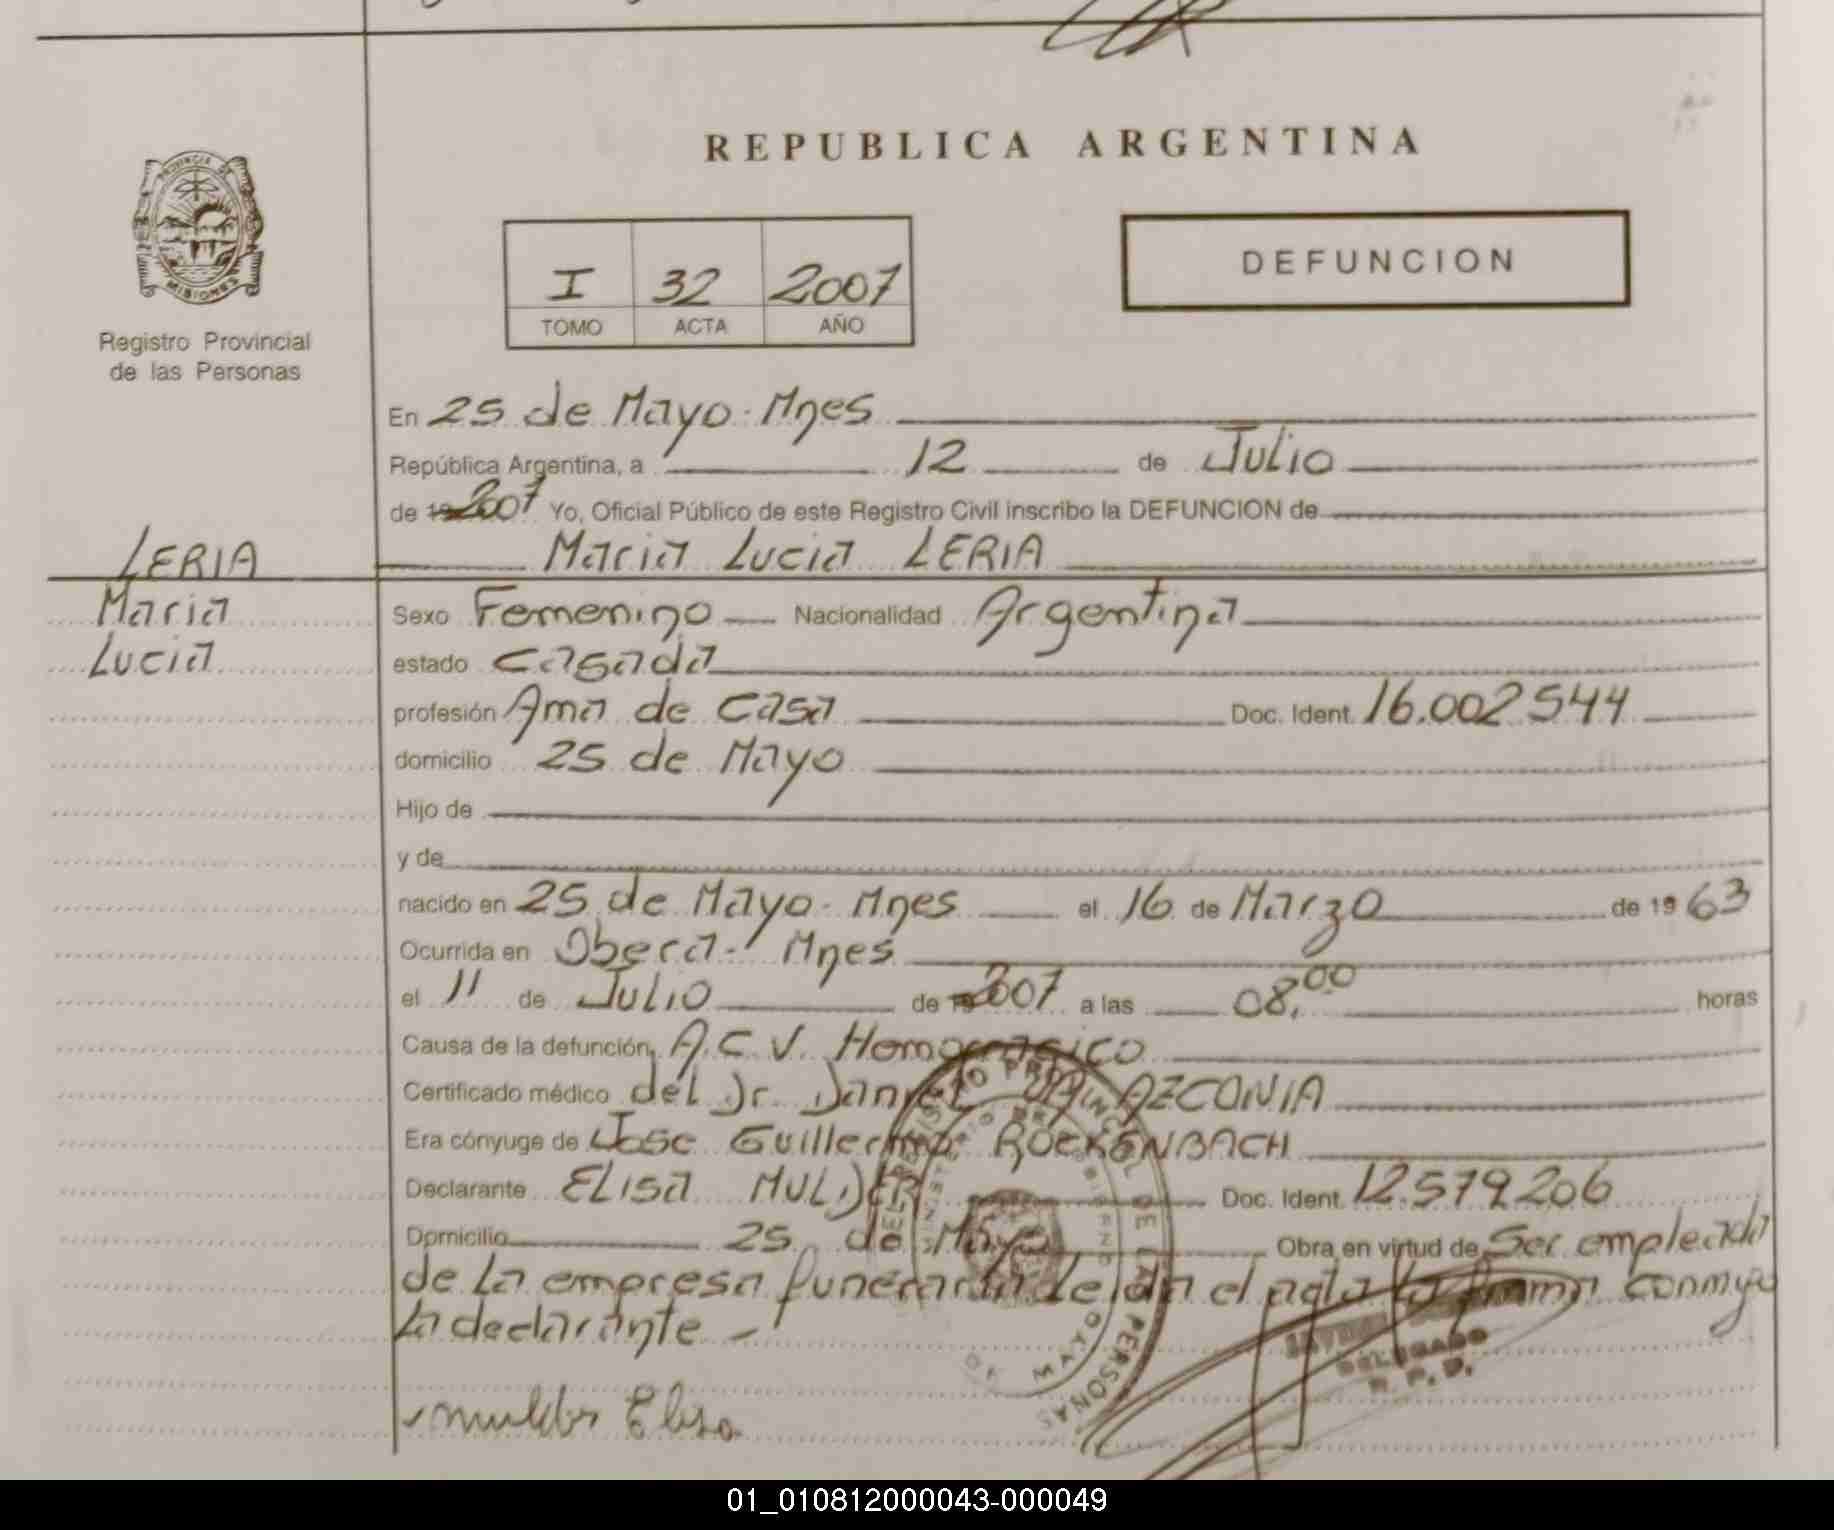 REPUBLICA ARGENTINA
PROVINCIA DE
MISIONES
Registro Provincial
de las Personas
I 32 2007
TOMO ACTA AÑO
DEFUNCION
En 25 de Mayo - Mnes
República Argentina, a 12 de Julio
de 19 2007 Yo, Oficial Público de este Registro Civil inscribo la DEFUNCION de
LERIA
Maria Lucia LERIA
Maria
Lucia
Sexo Femenino Nacionalidad Argentina
estado Casada
profesión Ama de Casa Doc. Ident. 16.002544
domicilio 25 de Mayo
Hijo de
y de
nacido en 25 de Mayo - Mnes el 16 de Marzo de 1963
Ocurrida en Obera - Mnes
el 11 de Julio de 19 2007 a las 08,00 horas
Causa de la defunción A.C.V. Homorragico
Certificado médico del Dr. Daniel AZCONIA
Era cónyuge de Jose Guillermo ROCKENBACH
Declarante ELISA MULDER Doc. Ident. 12.579206
Domicilio 25 de Mayo Obra en virtud de Ser empleada
de La empresa funeraria leida el acta la firma conmigo
La declarante -
mulder Elisa
REGISTRO PROVINCIAL DE LAS PERSONAS
MINISTERIO DE GOBIERNO
DELEGADO
R. P. P.
01_010812000043-000049